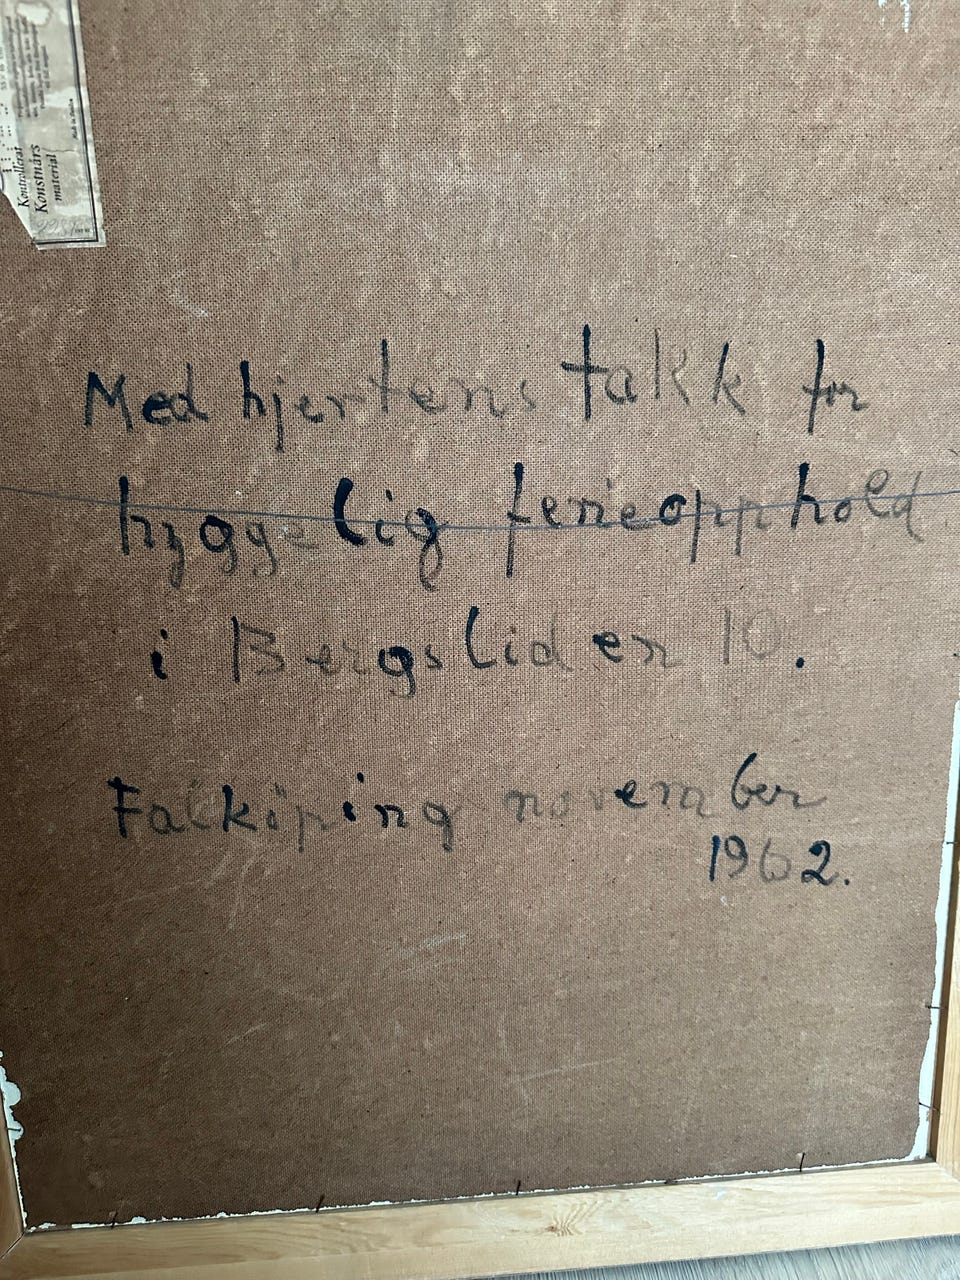 Kontrollerat
Konstnärs
material
Made in Sweden
Med hjertens takk for
hyggelig ferieopphold
i Bergsliden 10.
Falköping november
1962.